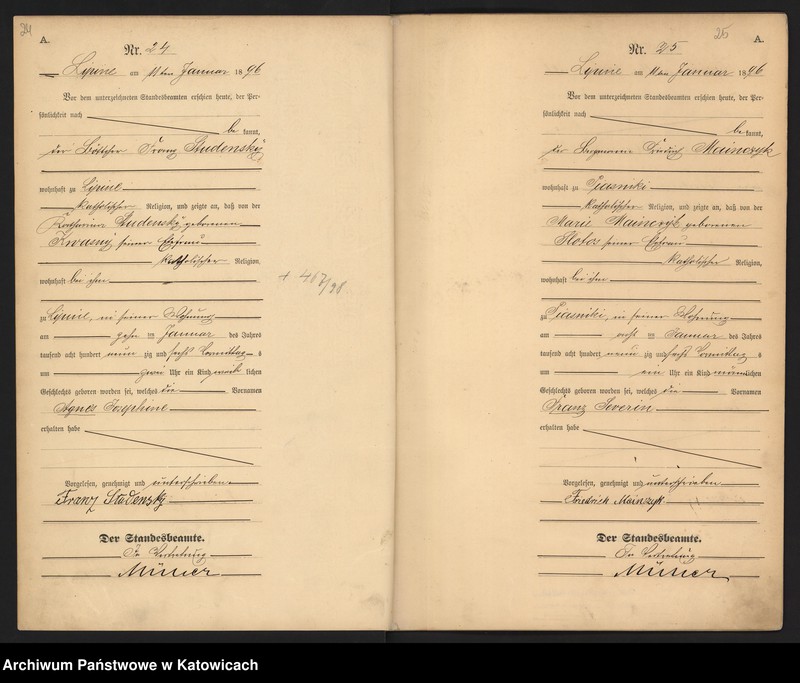 24
A.
Nr. 24
Lipine am 11ten Januar 1896
Vor dem unterzeichneten Standesbeamten erschien heute, der Per-
sönlichkeit nach
be kannt,
der Böttcher Franz Studensky
wohnhaft zu Lipine
katholischer Religion, und zeigte an, daß von der
Katharina Studensky geborenen
Kwasny, seiner Ehefrau
katholischer Religion,
wohnhaft bei ihm
zu Lipine, in seiner Wohnung
am zehn ten Januar des Jahres
tausend acht hundert neun zig und sechs Vormittags
um zwei Uhr ein Kind weib lichen
Geschlechts geboren worden sei, welches die Vornamen
Agnes Josephine
erhalten habe
Vorgelesen, genehmigt und unterschrieben
Franz Studensky
Der Standesbeamte.
In Vertretung
Müller
+ 467/98
25
A.
Nr. 25
Lipine am 11ten Januar 1896
Vor dem unterzeichneten Standesbeamten erschien heute, der Per-
sönlichkeit nach
be kannt,
der Bergmann Friedrich Mainczyk
wohnhaft zu Piasniki
katholischer Religion, und zeigte an, daß von der
Marie Mainczyk geborenen
Slotos seiner Ehefrau
katholischer Religion,
wohnhaft bei ihm
zu Piasniki, in seiner Wohnung
am acht ten Januar des Jahres
tausend acht hundert neun zig und sechs Vormittags
um ein Uhr ein Kind männlichen
Geschlechts geboren worden sei, welches die Vornamen
Franz Severin
erhalten habe
Vorgelesen, genehmigt und unterschrieben
Friedrich Mainczyk
Der Standesbeamte.
In Vertretung
Müller
Archiwum Państwowe w Katowicach